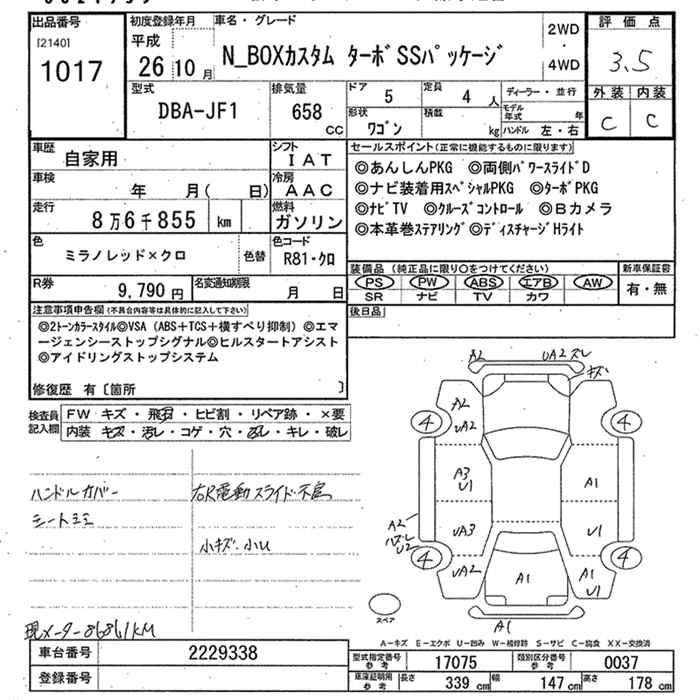 出品番号
[2140]
1017
初度登録年月
平成
26 10 月
車名・グレード
N_BOXカスタム ターボSSパッケージ
2WD
・
4WD
評価点
3.5
外装 内装
C C
型式
DBA-JF1
排気量
658
CC
ドア
5
定員
4 人
形状
ワゴン
積載
kg
ディーラー・並行
モデル年式 年
ハンドル 左・右
車歴
自家用
シフト
IAT
車検
年 月( 日)
冷房
AAC
走行
8万6千855 km
燃料
ガソリン
色
ミラノレッド×クロ
色替
色コード
R81・クロ
R券
9,790 円
名変通知期限
月 日
セールスポイント(正常に機能するものに限ります)
◎あんしんPKG ◎両側パワースライドD
◎ナビ装着用スペシャルPKG ◎ターボPKG
◎ナビTV ◎クルーズコントロール ◎Bカメラ
◎本革巻ステアリング◎ディスチャージHライト
装備品(純正品に限り○をつけてください)
PS PW ABS エアB AW
SR ナビ TV カワ
新車保証書
有・無
後日品
注意事項申告欄(不具合内容等は具体的に記入して下さい)
◎2トーンカラースタイル◎VSA(ABS+TCS+横すべり抑制)◎エマ
ージェンシーストップシグナル◎ヒルスタートアシスト
◎アイドリングストップシステム
修復歴 有〔箇所 〕
検査員記入欄
FW キズ・飛石・ヒビ割・リペア跡・×要
内装 キズ・汚レ・コゲ・穴・ムレ・キレ・破レ
ハンドルカバー
右R電動スライド・不良
シートミミ
小キズ・小U
現メーター86861KM
車台番号 2229338
登録番号
A2
UA2 ズレ
キズ
A2
UA2
4
4
A3
U1
A1
A2
ハズレ
U2
UA3
U1
4
4
UA2
A1
A1
U1
A1
スペア
A-キズ E-エクボ U-凹み W-補修跡 S-サビ C-腐食 XX-交換済
型式指定番号参考 17075
類別区分番号参考 0037
車庫証明用参考 長さ 339 cm 幅 147 cm 高さ 178 cm